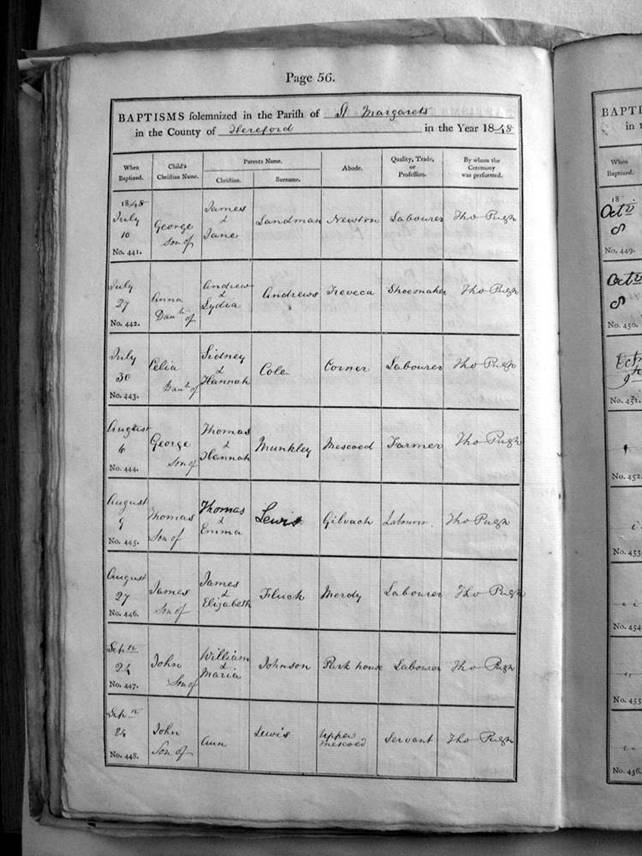 Page 56.
BAPTISMS solemnized in the Parish of St Margarets
in the County of Hereford in the Year 1848
When Baptized. Child's Christian Name. Parents Name. Christian. Surname. Abode. Quality, Trade, or Profession. By whom the Ceremony was performed.
1848
July 16 George son of James & Jane Landman Newton Labourer Tho Pugh
No. 441.
July 27 Anna Daur of Andrew & Lydia Andrews Treveca Shoemaker Tho Pugh
No. 442.
July 30 Celia Daur of Sidney & Hannah Cole Corner Labourer Tho Pugh
No. 443.
August 6 George Son of Thomas & Hannah Munkley Mescoed Farmer Tho Pugh
No. 444.
August 9 Thomas Son of Thomas & Emma Lewis Gilvach Labourer Tho Pugh
No. 445.
August 27 James Son of James & Elizabeth Fluck Merdy Labourer Tho Pugh
No. 446.
24 John Son of William & Maria Johnson Park house Labourer Tho Pugh
No. 447.
24 John Son of Ann Lewis Upper Mescoed Servant Tho Pugh
No. 448.
BAPTI
in t
When
Baptized.
18
8
No. 449.
8
No. 450.
No. 451.
No. 452
No. 453
No. 454
No. 455
No. 456.